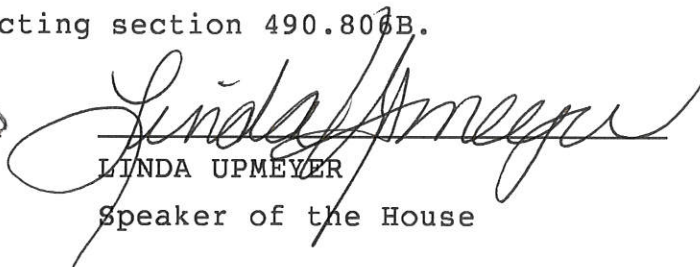 cting section 490.806B.
Linda Upmeyer
LINDA UPMEYER
Speaker of the House